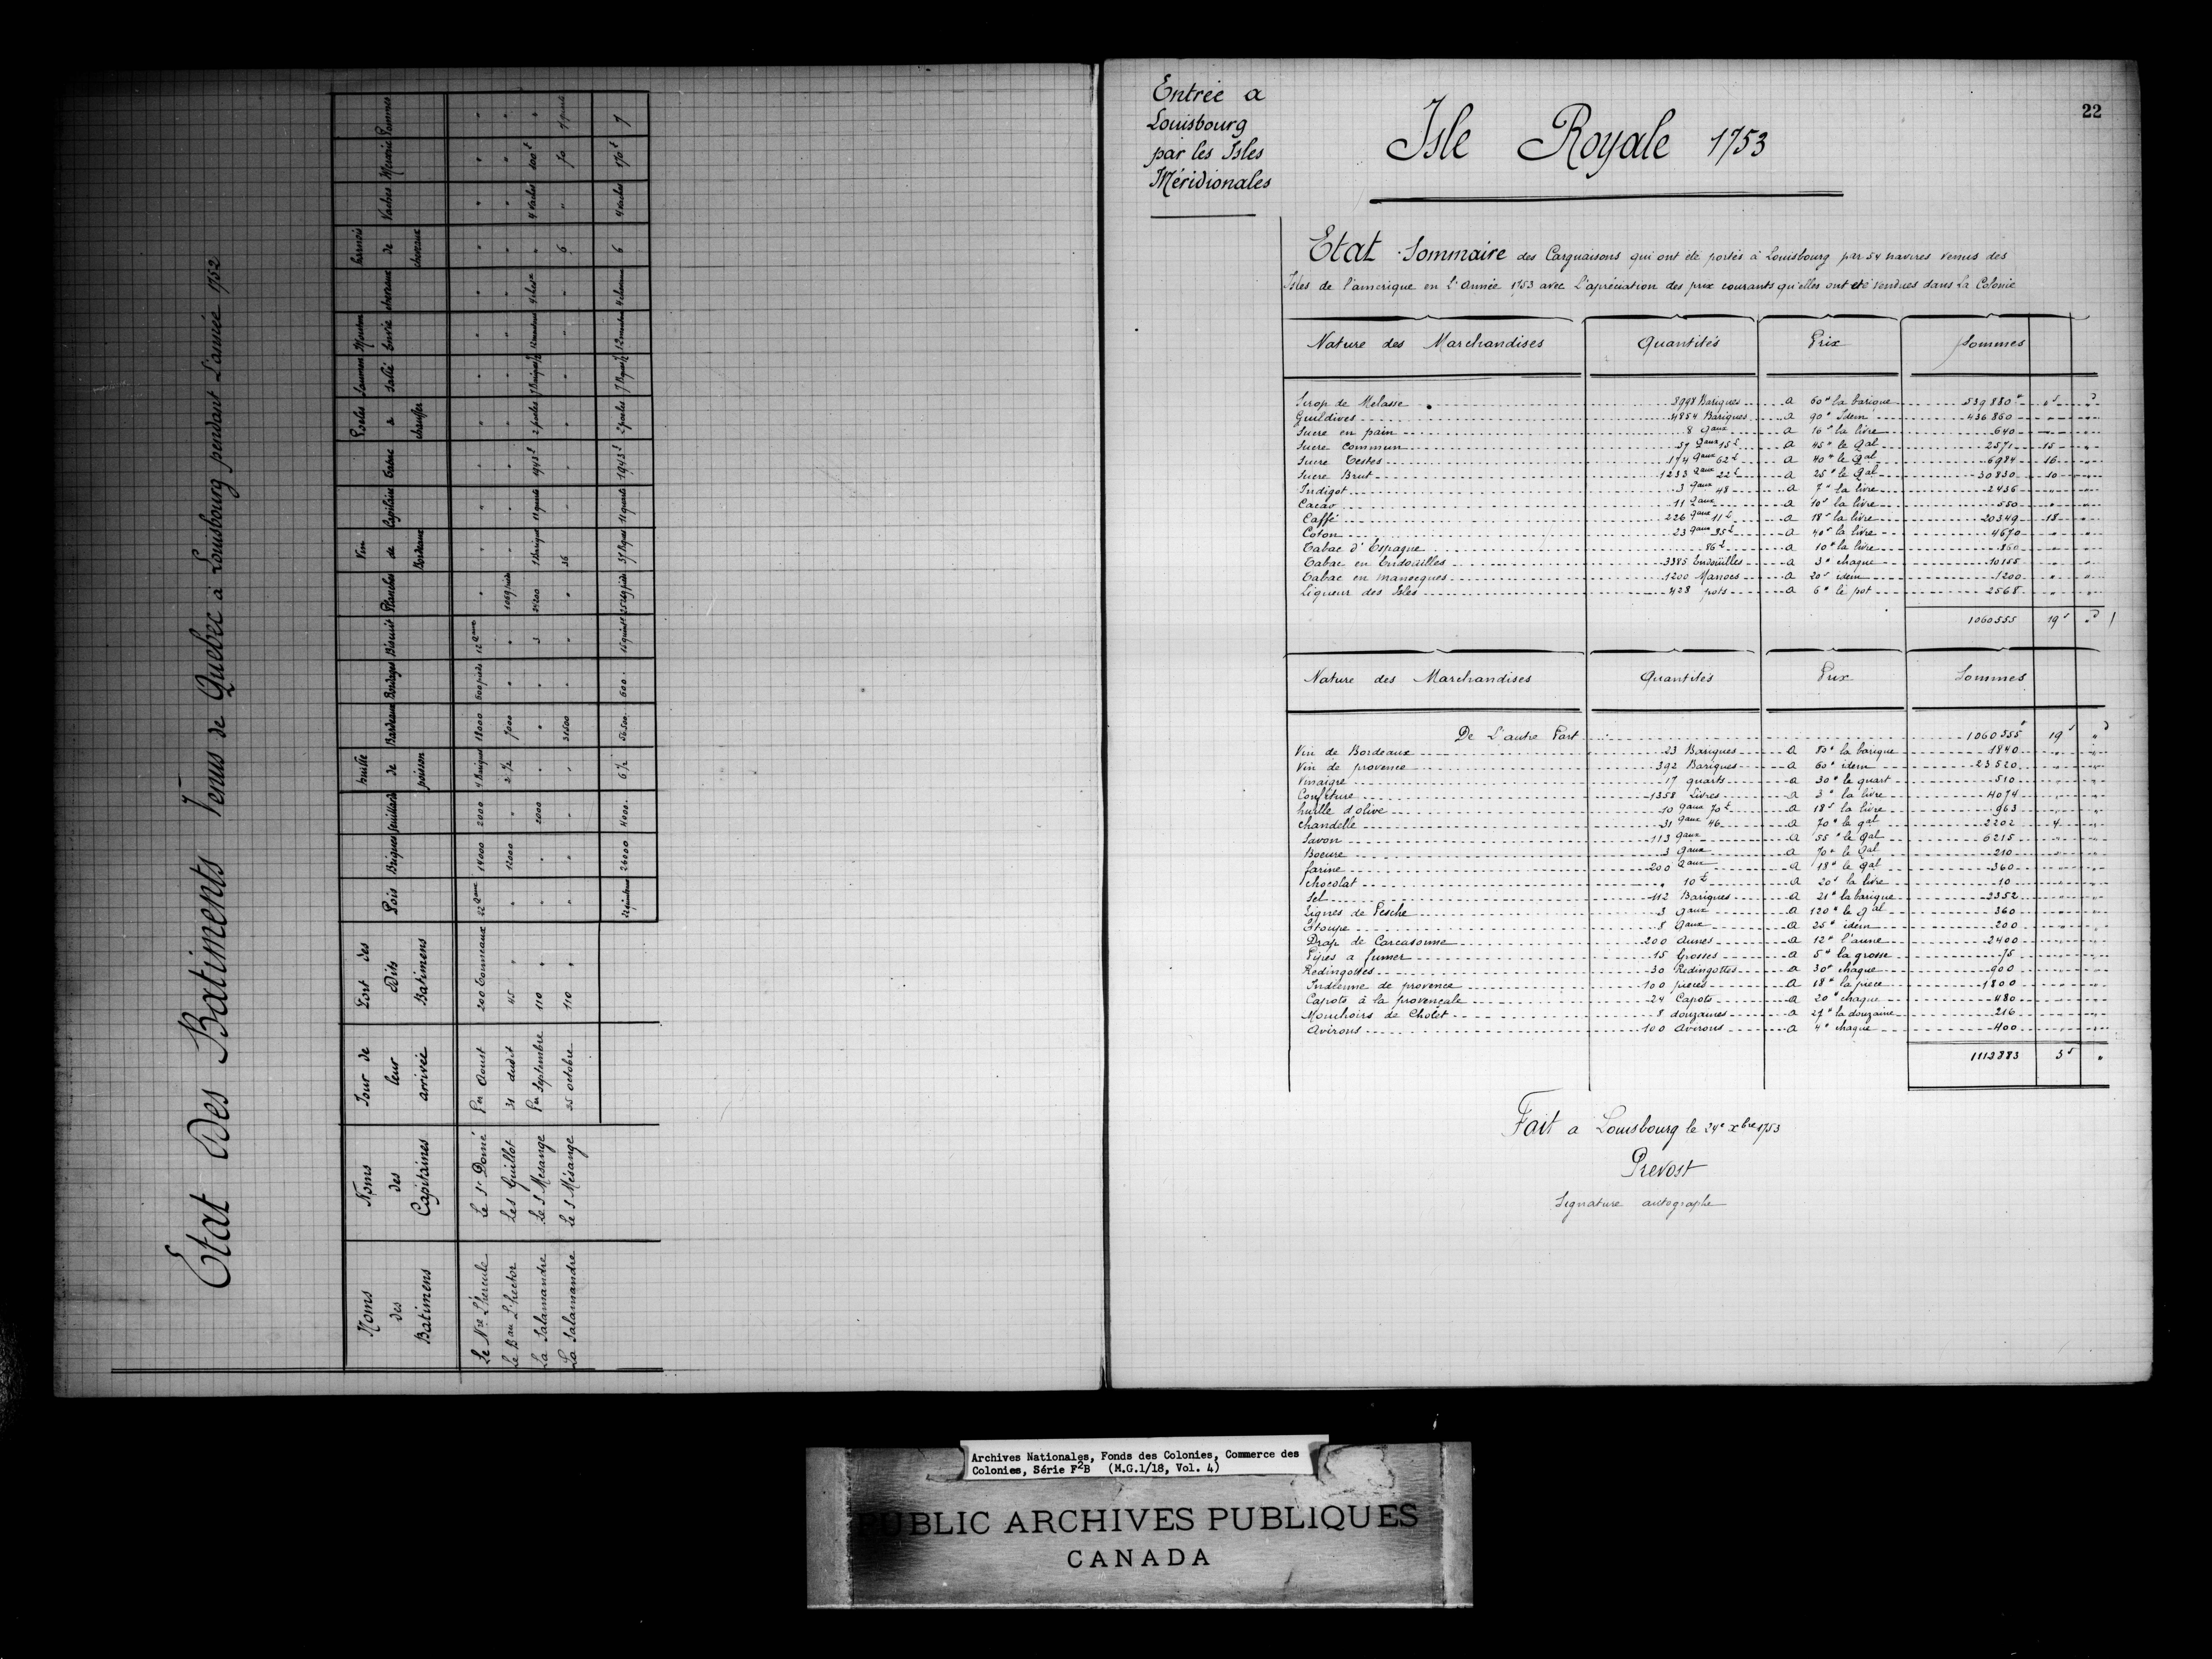 Etat Des Batiments Venus de Quebec à Louisbourg pendant L'année 1752
Noms des Batimens | Noms des Capitaines | Jour de leur arrivée | Port des Dits Batimens | Pois | Briques | feuillards | huille de poisson | Bardeaux | Bordages | Biscuit | Planches | Vin de Bordeaux | Capilaire | Tabac | Poeles a chauffer | Saumon Sallé | Mouton Envie | chevaux | harnois de chevaux | Vaches | Morue | Pommes
Le Nre L'hercule | Le Sr Domé | Per Aoust | 200 Tonneaux | 22 qaux | 14000 | 2000 | 4 Bariques | 18000 | 600 pieds | 12 qaux | " | " | " | " | " | " | " | " | " | " | " | "
Le Bau L'hector | Le S Guillot | 31 dudit | 45 " | " | 12000 | " | 2 1/2 | 7000 | " | " | 1069 pieds | " | " | " | " | " | " | " | " | " | " | "
La Salamandre | Le S Mesange | Per Septembre | 110 " | " | " | 2000 | " | " | " | 3 | 24200 | 1 Barique | 11 quarts | 1943 £ | 2 poeles | 7 Bariques 1/2 | 12 moutons | 4 chevx | " | 4 Vaches | 100 £ | "
La Salamandre | Le S Mésange | 25 octobre | 110 " | " | " | " | " | 31500 | " | " | " | 36 | " | " | " | " | " | " | 6 | " | 70 | 7 quarts
22 quintaux | 26000 | 4000 | 6 1/2 | 56500 | 600 | 15 quint | 25269 pieds | 37 Bques | 11 quarts | 1943 £ | 2 poeles | 7 Bques 1/2 | 12 moutons | 4 chevaux | 6 | 4 Vaches | 170 £ | 7
22
Entrée a
Louisbourg
par les Isles
Méridionales
Isle Royale 1753
Etat Sommaire des Carguaisons qui ont été portés à Louisbourg par 54 navires venus des
Isles de l'amerique en L'Année 1753 avec L'apréciation des prix courants qu'elles ont été vendues dans la Colonie
Nature des Marchandises | Quantités | Prix | Sommes
Sirop de Melasse | 8998 Bariques | a 60 # la barique | 539880 # | " s | " d
Guildives | 4854 Bariques | a 90 # Idem | 436860
Sucre en pain | 8 qaux | a 16 s la livre | 640
Sucre Commun | 57 qaux 15 £ | a 45 # le qal | 2571 | 15 | "
Sucre Testes | 174 qaux 62 £ | a 40 # le qal | 6984 | 16 | "
Sucre Brut | 1233 qaux 22 £ | a 25 # le qal | 30830 | 10 | "
Indigot | 3 qaux 48 | a 7 # la livre | 2436 | " | "
Cacao | 11 qaux | a 10 s la livre | 550 | " | "
Caffé | 226 qaux 11 £ | a 18 s la livre | 20349 | 18 | "
Coton | 23 qaux 35 £ | a 40 s la livre | 4670 | " | "
Tabac d'Espagne | 86 £ | a 10 # la livre | 860 | " | "
Tabac en Endouilles | 3385 Endoüilles | a 3 # chaque | 10155 | " | "
Tabac en manocques | 1200 Manocs | a 20 s idem | 1200 | " | "
Liqueur des Isles | 428 pots | a 6 # le pot | 2568 | " | "
1060555 | 19 s | " d
Nature des Marchandises | Quantités | Prix | Sommes
De L'autre Part | 1060555 # | 19 s | " d
Vin de Bordeaux | 23 Bariques | a 80 # la barique | 1840 | " | "
Vin de provence | 392 Bariques | a 60 # idem | 23520 | " | "
Vinaigre | 17 quarts | a 30 # le quart | 510 | " | "
Confiture | 1358 Livres | a 3 # la livre | 4074 | " | "
huille d'olive | 10 qaux 70 £ | a 18 s la livre | 963 | " | "
chandelle | 31 qaux 46 | a 70 # le qal | 2202 | 4 | "
Savon | 113 qaux | a 55 # le qal | 6215 | " | "
Boeure | 3 qaux | a 70 # le qal | 210 | " | "
farine | 200 qaux | a 18 # le qal | 360 | " | "
chocolat | " 10 £ | a 20 s la livre | 10 | " | "
Sel | 112 Bariques | a 21 # la barique | 2352 | " | "
Lignes de Pesche | 3 qaux | a 120 # le qal | 360 | " | "
Etoupe | 8 qaux | a 25 # idem | 200 | " | "
Drap de Carcasonne | 200 Aunes | a 12 # l'aune | 2400 | " | "
Pipes a fumer | 15 Grosses | a 5 # la grosse | 75 | " | "
Redingottes | 30 Redingottes | a 30 # chaque | 900 | " | "
Indienne de provence | 100 pieces | a 18 # la piece | 1800 | " | "
Capots à la provençale | 24 Capots | a 20 # chaque | 480 | " | "
Mouchoirs de Cholet | 8 douzaines | a 27 # la douzaine | 216 | " | "
Avirons | 100 Avirons | a 4 # chaque | 400 | " | "
1113383 | 3 s | "
Fait a Louisbourg le 24e xbre 1753
Prevost
Signature autographe
Archives Nationales, Fonds des Colonies, Commerce des
Colonies, Série F2B (M.G.1/18, Vol. 4)
PUBLIC ARCHIVES PUBLIQUES
CANADA